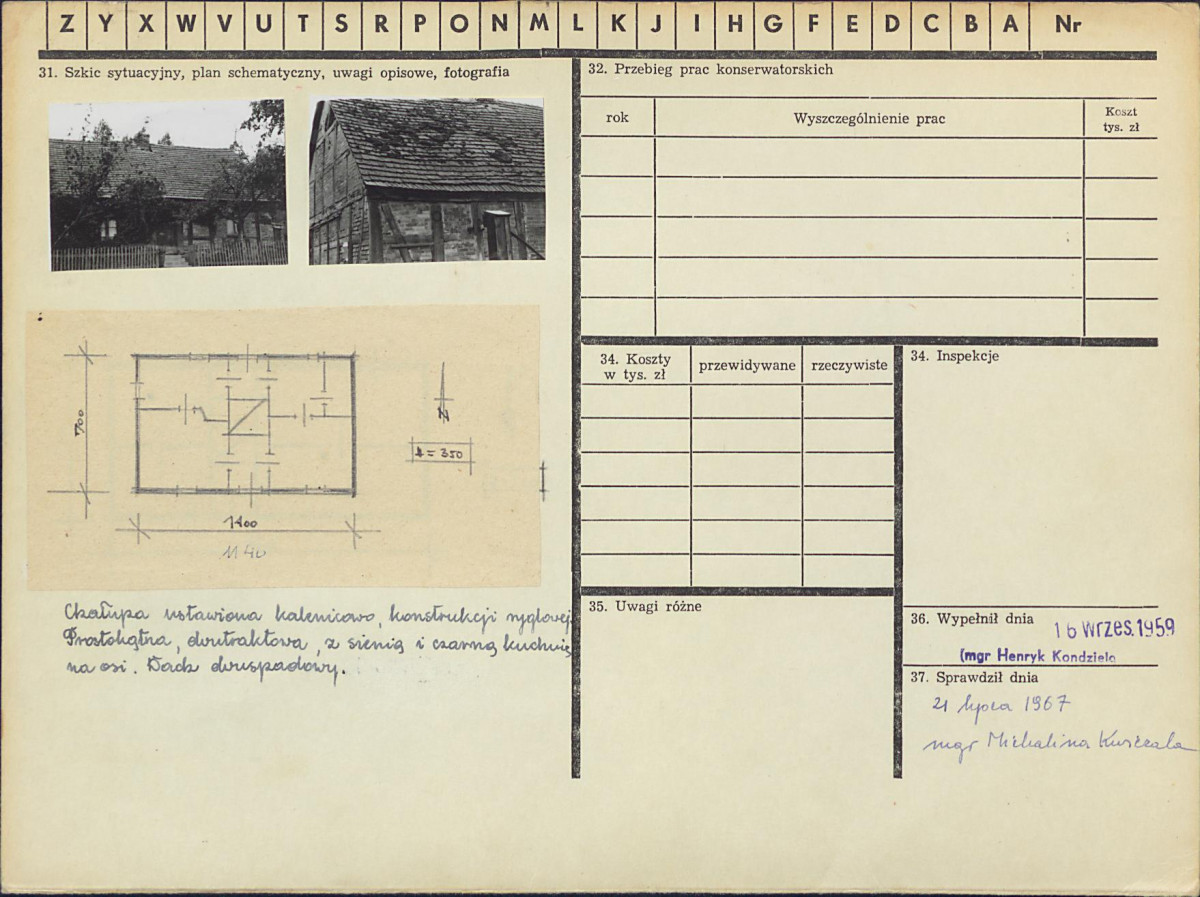 Z Y X W V U T S R P O N M L K J I H G F E D C B A Nr
31. Szkic sytuacyjny, plan schematyczny, uwagi opisowe, fotografia
700
N
h = 350
1400
11 40
Chałupa ustawiona kalenicowo, konstrukcji ryglowej.
Prostokątna, dwutraktowa, z sienią i czarną kuchnią
na osi. Dach dwuspadowy.
32. Przebieg prac konserwatorskich
rok
Wyszczególnienie prac
Koszt
tys. zł
34. Koszty
w tys. zł
przewidywane
rzeczywiste
34. Inspekcje
35. Uwagi różne
36. Wypełnił dnia
16 wrzes. 1959
(mgr Henryk Kondziela
37. Sprawdził dnia
21 lipca 1967
mgr Michalina